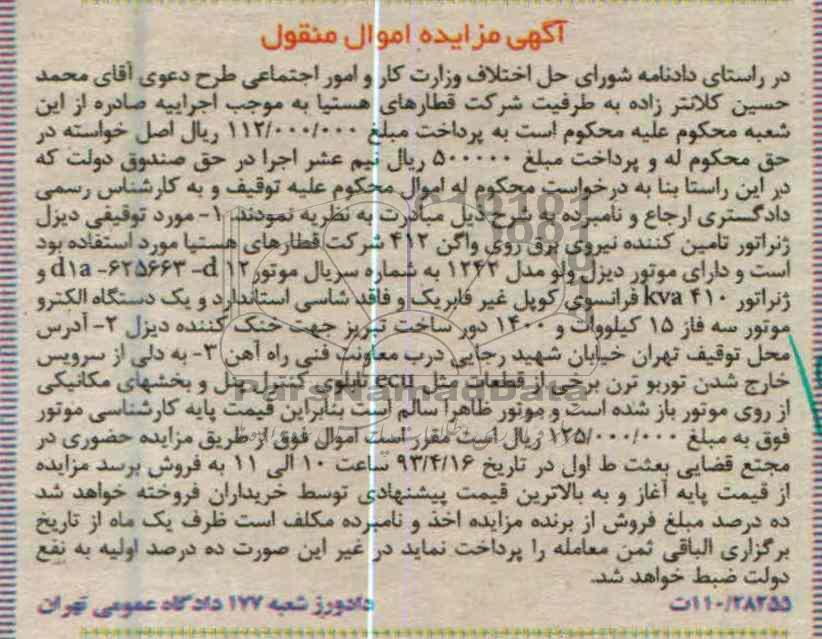 آگهی مزایده اموال منقول
در راستای دادنامه شورای حل اختلاف وزارت کار و امور اجتماعی طرح دعوی آقای محمد
حسین کلانتر زاده به طرفیت شرکت قطارهای هستیا به موجب اجراییه صادره از این
شعبه محکوم علیه محکوم است به پرداخت مبلغ ۱۱۲/۰۰۰/۰۰۰ ریال اصل خواسته در
حق محکوم له و پرداخت مبلغ ۵۰۰۰۰۰ ریال نیم عشر اجرا در حق صندوق دولت که
در این راستا بنا به درخواست محکوم له اموال محکوم علیه توقیف و به کارشناس رسمی
دادگستری ارجاع و نامبرده به شرح ذیل مبادرت به نظریه نمودند ۱- مورد توقیفی دیزل
ژنراتور تامین کننده نیروی برق روی واگن ۴۱۲ شرکت قطارهای هستیا مورد استفاده بود
است و دارای موتور دیزل ولو مدل ۱۲۴۲ به شماره سریال موتور d۱a -۶۲۵۶۶۳ -d ۱۲ و
ژنراتور ۴۱۰ kva فرانسوی کوپل غیر فابریک و فاقد شاسی استاندارد و یک دستگاه الکترو
موتور سه فاز ۱۵ کیلووات و ۱۴۰۰ دور ساخت تبریز جهت خنک کننده دیزل ۲- آدرس
محل توقیف تهران خیابان شهید رجایی درب معاونت فنی راه آهن ۳- به دلی از سرویس
خارج شدن توربو ترن برخی از قطعات مثل ecu تابلوی کنترل پنل و بخشهای مکانیکی
از روی موتور باز شده است و موتور ظاهرا سالم است بنابراین قیمت پایه کارشناسی موتور
فوق به مبلغ ۱۲۵/۰۰۰/۰۰۰ ریال است مقرر است اموال فوق از طریق مزایده حضوری در
مجتع قضایی بعثت ط اول در تاریخ ۹۳/۴/۱۶ ساعت ۱۰ الی ۱۱ به فروش برسد مزایده
از قیمت پایه آغاز و به بالاترین قیمت پیشنهادی توسط خریداران فروخته خواهد شد
ده درصد مبلغ فروش از برنده مزایده اخذ و نامبرده مکلف است ظرف یک ماه از تاریخ
برگزاری الباقی ثمن معامله را پرداخت نماید در غیر این صورت ده درصد اولیه به نفع
دولت ضبط خواهد شد.
۱۱۰/۲۸۲۵۵ت دادورز شعبه ۱۷۷ دادگاه عمومی تهران
ParsNamadData